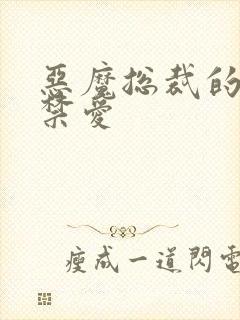 惡魔總裁的
禁愛
瘦成一道閃電